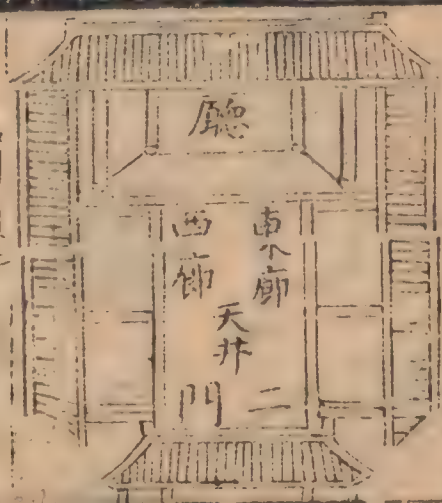 廳
東廊
西廊
天井
二門